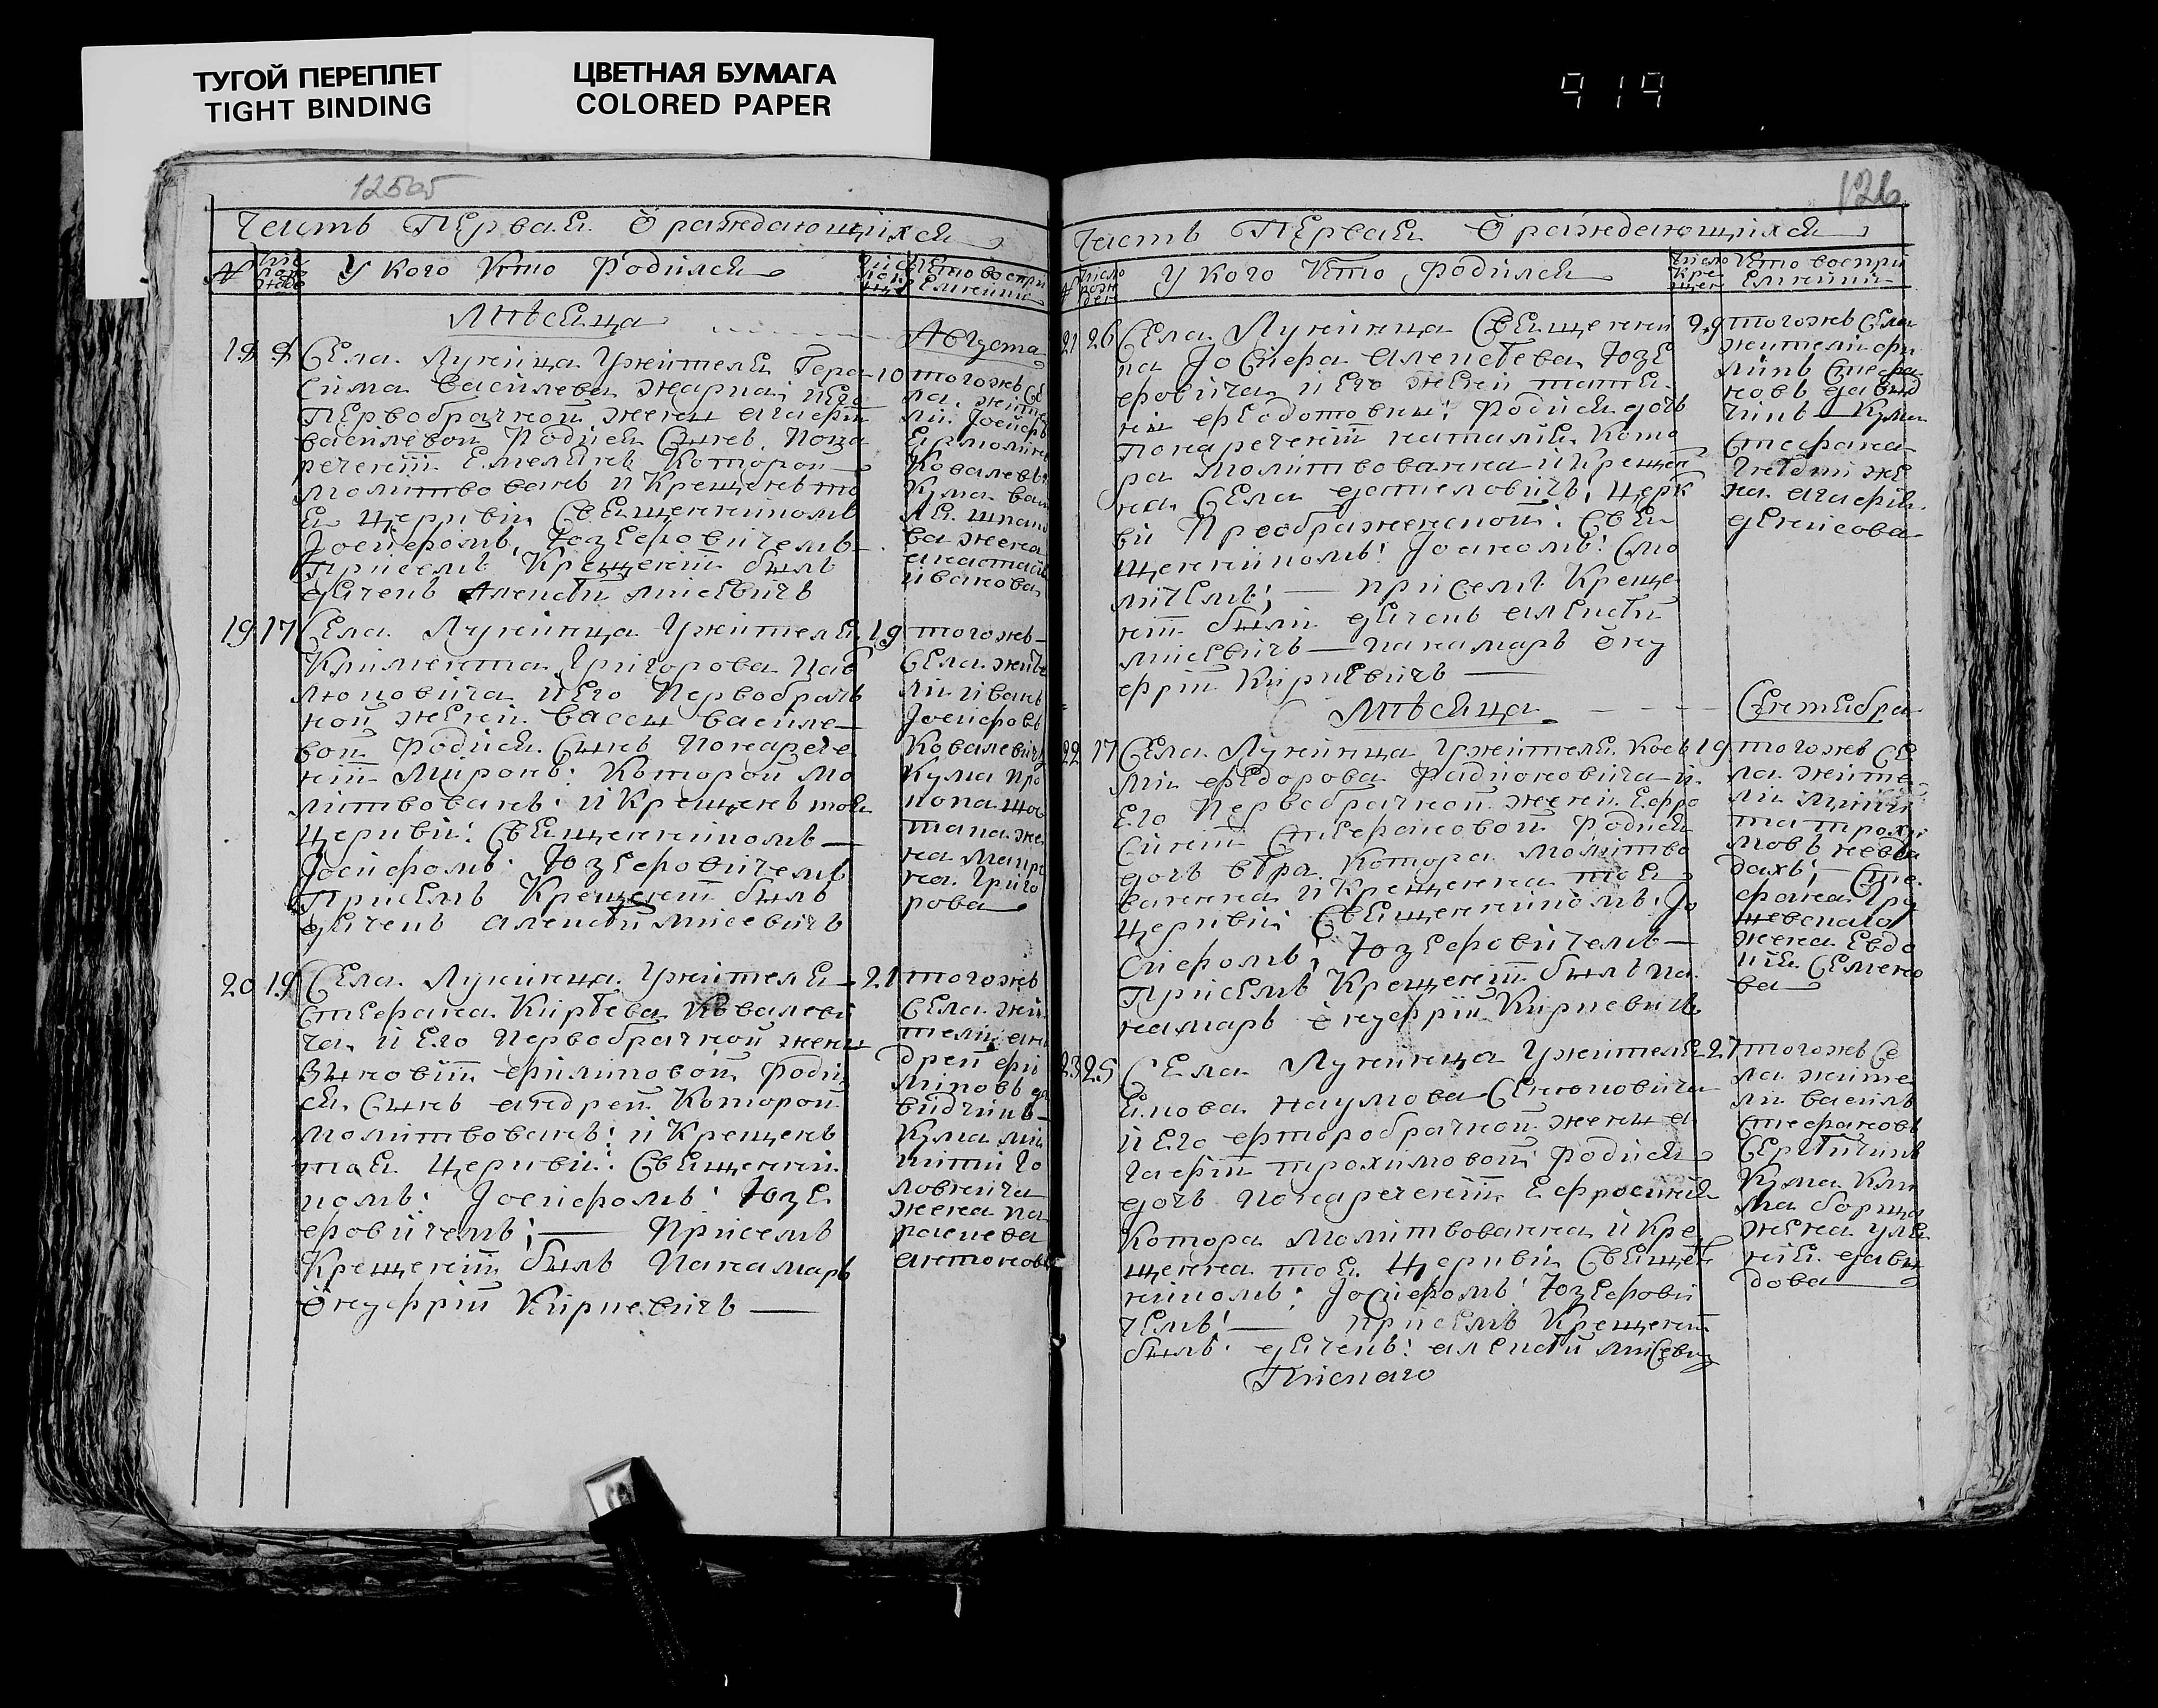 ТУГОЙ ПЕРЕПЛЕТ
TIGHT BINDING
ЦВЕТНАЯ БУМАГА
COLORED PAPER
919
126
Часть Первая О раждающихся
У кого кто родился
Месяца
Августа
18 9 Села Лунинца Ужителя Гера 10
сима василева
Первобрачной жены агафіи
василевой Родися Сынъ Пона
речени Емелянъ Которой
Молитвованъ и Крещенъ то
я Церкви Священникомъ
Іосифомъ Юзефовичемъ
Присемъ Крещеніи былъ
Дячекъ Алексѣй мисевичъ
тогожъ Се
ла жите
ли Іосифъ
Ковалевъ
Кума
ва жена
анастасія
иванова
19 17 Села Лунинца Ужителя 19
Климента Григорова Пав
люковича и Его Первобрач
ной жены вассы василе
вой Родися Сынъ Понарече
ніи Миронъ Которой мо
литвованъ и Крещенъ тоя
Церкви Священникомъ
Іосифомъ Юзефовичемъ
Присемъ Крещеніи былъ
Дячекъ алексѣй мисевичъ
тогожъ
Села жите
ли иванъ
Іосифовъ
Ковалевичъ
Кума про
копа шос
така же
на мавро
на Григо
рова
20 19 Села Лунинца Ужителя 21
Стефана Кирѣева Ковалеви
ча и Его Первобрачной жены
Зиновіи филиповой Роди
ся Сынъ андрей Которой
Молитвованъ и Крещенъ
тоя Церкви Священни
комъ Іосифомъ Юзе
фовичемъ Присемъ
Крещеніи былъ Панамарь
Онуфрій Киркевичъ
тогожъ
Села жи
тели ан
дрей фи
липовъ да
видчикъ
Кума ми
китти го
ловкича
жена па
раскева
антонова
Часть Первая О раждающихся
У кого кто родился
21 26 Села Лунинца Священни 29
ка Іосифа алексѣева Юзе
фовича и Его жены татия
ни федотовны Родися дочъ
понаречени наталия Кото
ра Молитвованна и Креще
на Села дятеловичъ Церк
ви Преображенской Свя
щенникомъ Іоаномъ Смо
личемъ присемъ Креще
ніи были дячекъ алексѣй
мисевичъ панамарь ону
фрій Кирке­вичъ
тогожъ Села
жители фи
липъ Стефа
новъ давид
чикъ Кума
Стефана
жена агафия
денисова
Месяца
Сентября
22 17 Села Лунинца Ужителя Козь 19
ми федорова Радионовича и
Его Первобрачной жены Ефро
синіи Стефановой Родися
дочъ вѣра Котора Молитво
ванна и Крещенна тоя
Церкви Священникомъ Іо
сифомъ Юзефовичемъ
Присемъ Крещеніи былъ па
намарь Онуфрій Киркевичъ
тогожъ Се
ла жите
ли мики
та трохи
мовъ невда
дахъ Сте
фана Гру
шевскаго
жена Евдо
кия Семено
ва
23 25 Села Лунинца Ужителя 27
Якова наумова Сенюковича
и Его фторобрачной жены а
гафіи трохимовой Родися
дочъ понаречени Ефросиния
Котора Молитвованна и Кре
щенна тоя Церкви Священ
никомъ Іосифомъ Юзефови
чемъ присемъ Крещеніи
былъ дячекъ алексѣй мисевич
Пискаго
тогожъ Се
ла жите
ли василь
стефановъ
Сергѣйчикъ
Кума Кли
ма борица
жена Улея
ния дави
дова